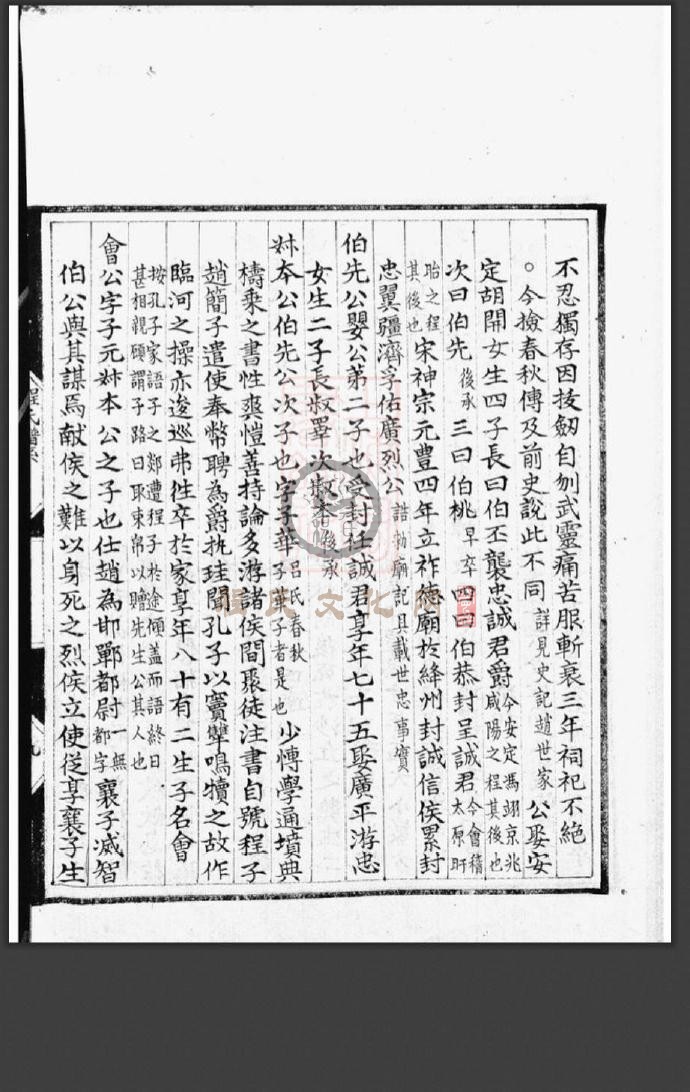 不忍獨存因技劒自刎武靈痛苦服斬衰三年祠祀不絶
○今撿春秋傳及前史說此不同 詳見史記趙世家 公娶安
定胡開女生四子長曰伯丕襲忠誠君爵 今安定馮翊京兆咸陽之程其後也
次曰伯先 後承 三曰伯桃 早卒 四曰伯恭封呈誠君 今會稽太原盱
眙之程其後也 宋神宗元豊四年立祚德廟於絳州封誠信侯累封
忠翼彊濟孚佑廣烈公 誥勑廟記具載世忠事實
伯先公嬰公第二子也受封任誠君享年七十五娶廣平游忠
女生二子長叔睪次叔夲 後承
叔夲公伯先公次子也字子華 呂氏春秋子華子者是也 少慱學通墳典
檮乗之書性爽愷善持論多游諸侯間聚徒注書自號程子
趙簡子遣使奉幣聘為爵执珪聞孔子以竇犨鳴犢之故作
臨河之操亦逡巡弗徃卒於家享年八十有二生子名會
按孔子家語子之郯遭程子於途傾盖而語終日甚相親顧謂子路曰取束帛以贈先生公其人也
會公字子元叔本公之子也仕趙為邯鄲都尉 一無都字 襄子滅智
伯公與其謀焉献侯之難以身死之烈侯立使從享襄子生
程氏譜系
九